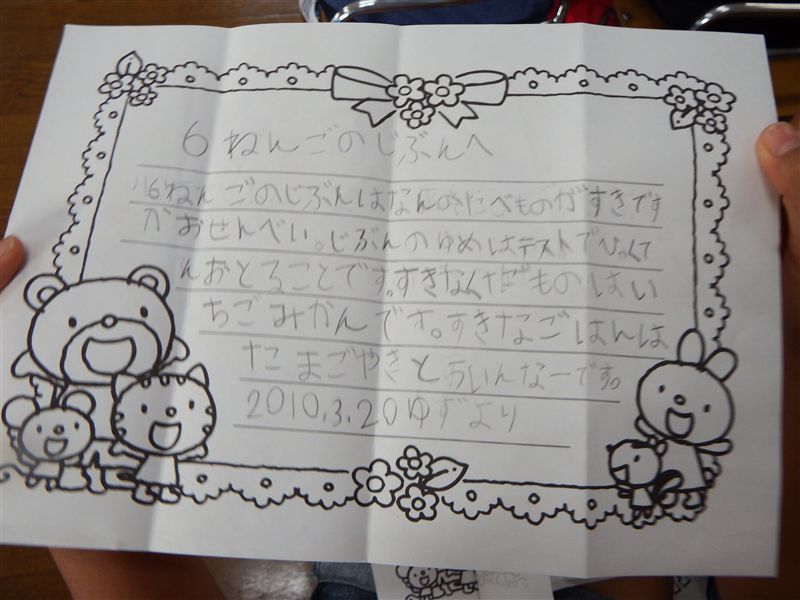 6ねんごのじぶんへ
6ねんごのじぶんはなんのたべものがすきです
かおせんべい。じぶんのゆめはテストでひゃくて
んおとることです。すきなくだものはい
ちごみかんです。すきなごはんは
たまごやきとういんなーです。
2010.3.20ゆずより